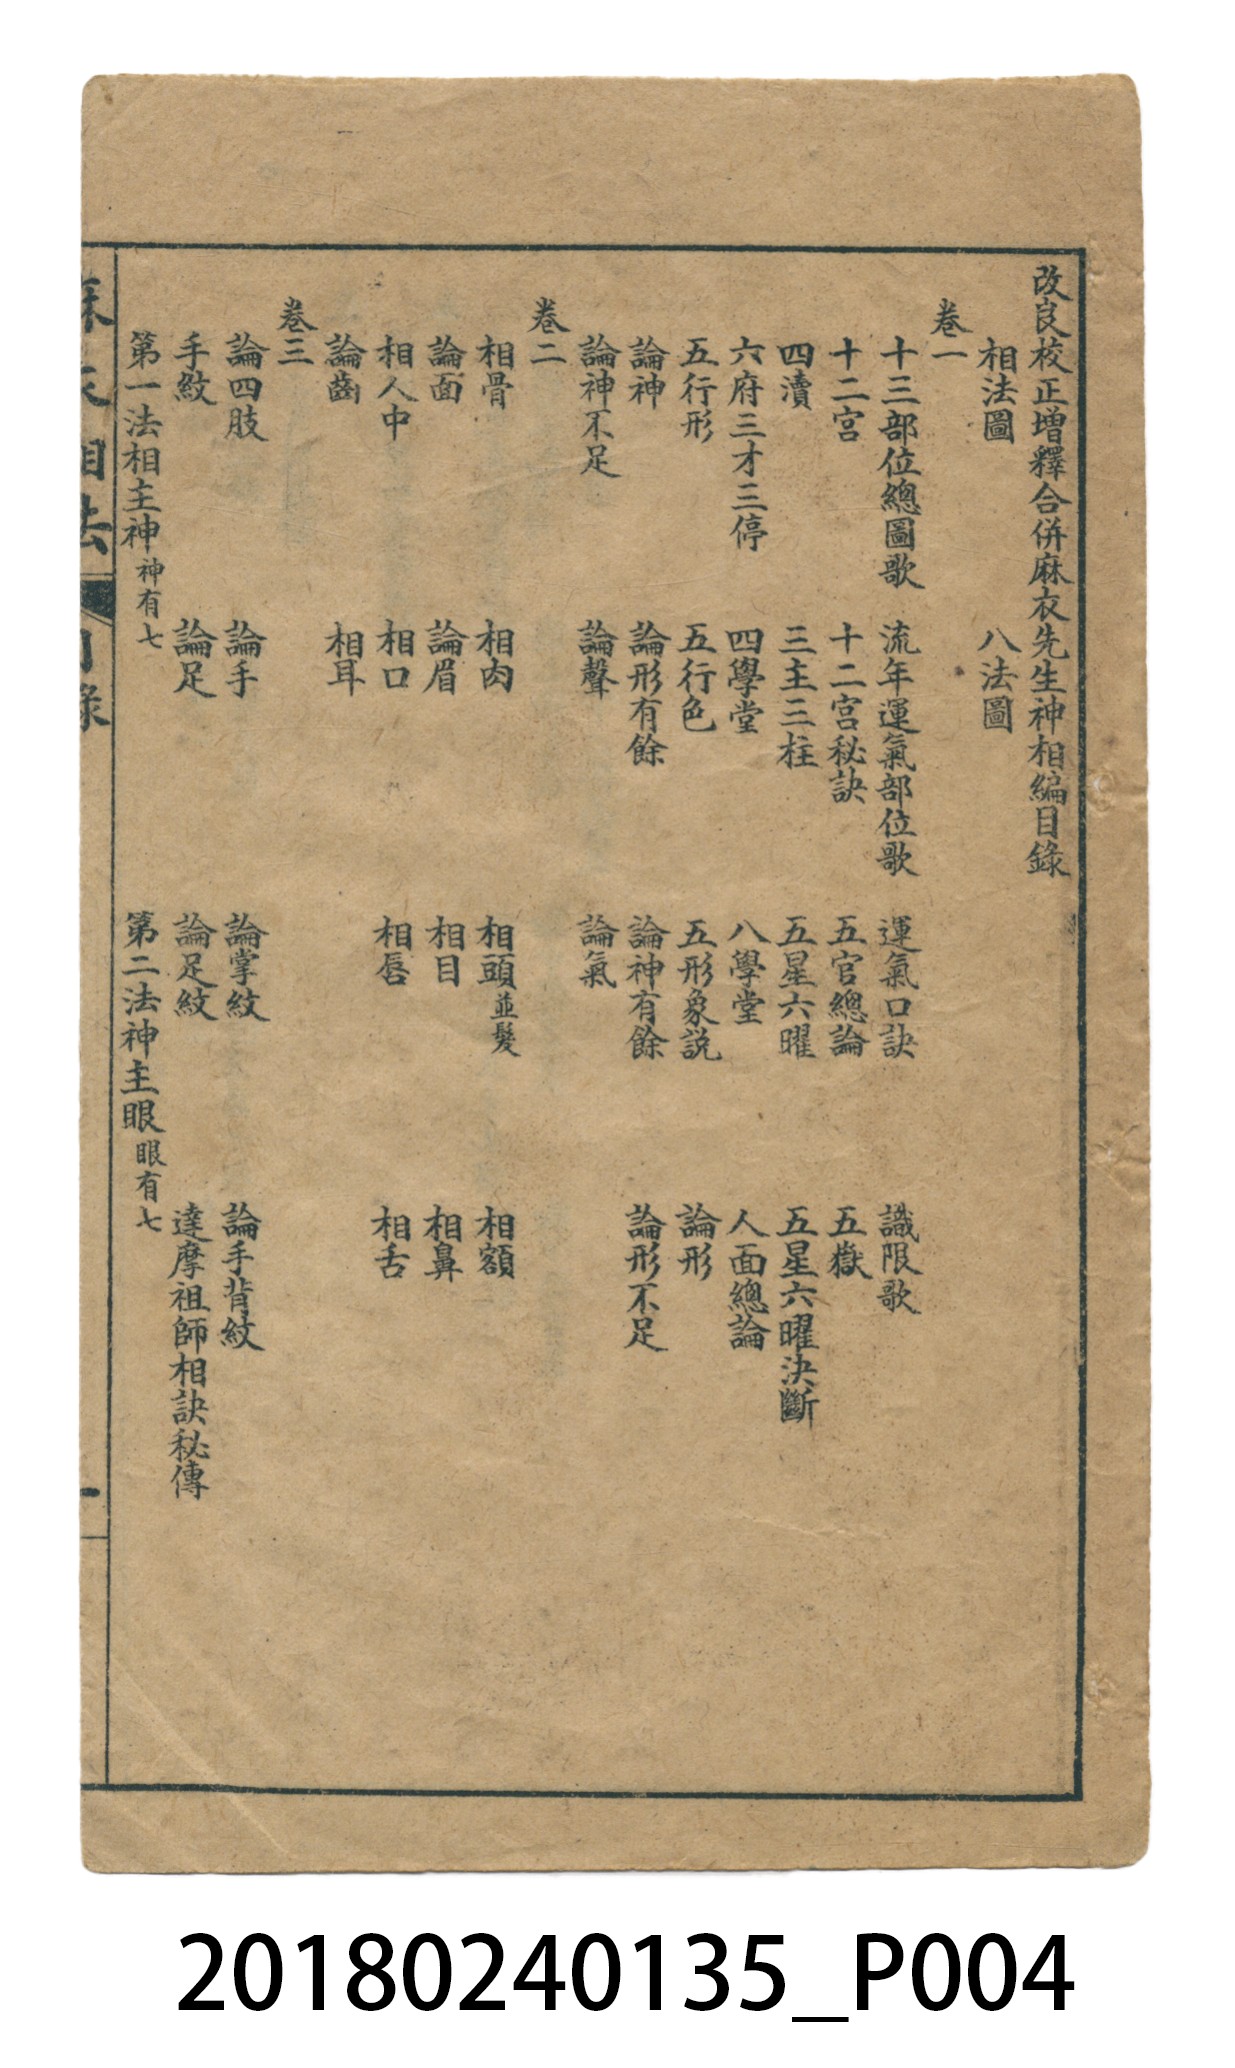 改良校正增釋合併麻衣先生神相編目錄
相法圖　八法圖
卷一
十三部位總圖歌　流年運氣部位歌　運氣口訣　識限歌
十二宮　十二宮秘訣　五官總論　五嶽
四瀆　三主三柱　五星六曜　五星六曜決斷
六府三才三停　四學堂　八學堂　人面總論
五行形　五行色　五形象説　論形
論神　論形有餘　論神有餘　論形不足
論神不足　論聲　論氣
卷二
相骨　相肉　相頭並髮　相額
論面　論眉　相目　相鼻
相人中　相口　相唇　相舌
論齒　相耳
卷三
論四肢　論手　論掌紋　論手背紋
手紋　論足　論足紋　達摩祖師相訣秘傳
第一法相主神神有七　第二法神主眼眼有七
麻衣相法　目錄　一
20180240135_P004